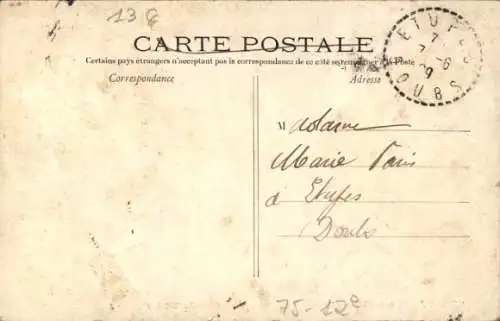 13 e
CARTE POSTALE
Certains pays étrangers n'acceptant pas la correspondance de ce côté se renseigner à la Poste
Correspondance
Adresse
ETUPES
DOUBS
Madame
Marie Paris
à Etupes
Doubs
75-12e